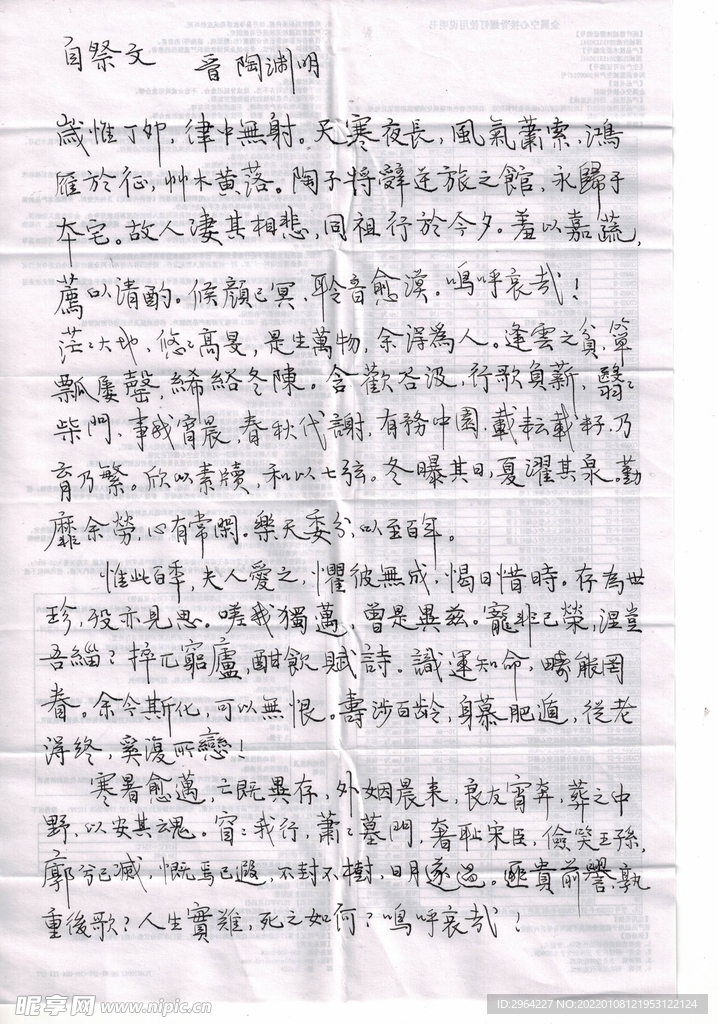 自祭文 晋 陶渊明
歲惟丁卯，律中無射。天寒夜長，風氣蕭索，鴻
雁於征，艸木黄落。陶子將辭逆旅之館，永歸于
本宅。故人凄其相悲，同祖行於今夕。羞以嘉蔬，
薦以清酌。候顔已冥，聆音愈漠。嗚呼哀哉！
茫〻大地，悠〻高旻，是生萬物，余得為人。逢運之貧，簞
瓢屢罄，絺綌冬陳。含歡谷汲，行歌負薪，翳〻
柴門，事我宵晨，春秋代謝，有務中園，載耘載耔，乃
育乃繁。欣以素牘，和以七弦。冬曝其日，夏濯其泉。勤
靡余勞，心有常閑。樂天委分，以至百年。
惟此百年，夫人愛之，懼彼無成，愒日惜時。存為世
珍，殁亦見思。嗟我獨邁，曾是異兹。寵非己榮，涅豈
吾緇？捽兀窮廬，酣飲賦詩。識運知命，疇能罔
眷。余今斯化，可以無恨。壽涉百龄，身慕肥遁，從老
得終，奚復所戀！
寒暑愈邁，亡既異存，外姻晨来，良友宵奔，葬之中
野，以安其魂。窅〻我行，蕭〻墓門，奢耻宋臣，儉笑王孫，
廓兮已滅，慨焉已遐，不封不樹，日月遂過。匪貴前譽，孰
重後歌？人生實難，死之如何？嗚呼哀哉！
昵享网 www.nipic.cn
ID:2964227 NO:20220108121953122124